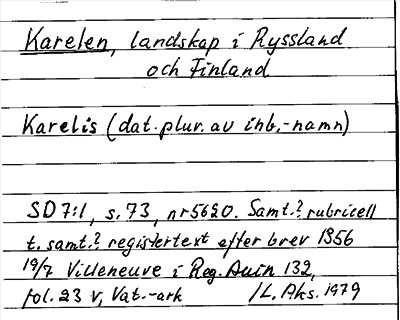 Karelen, landskap i Ryssland
och Finland
Karelis (dat. plur. av inb.-namn)
SD 7:1, s. 73, nr 5620. Samt.? rubricell
t. samt.? registertext efter brev 1356
19/7 Villeneuve i Reg. Avin 132,
fol. 23 v, Vat.-ark /L. Aks. 1979